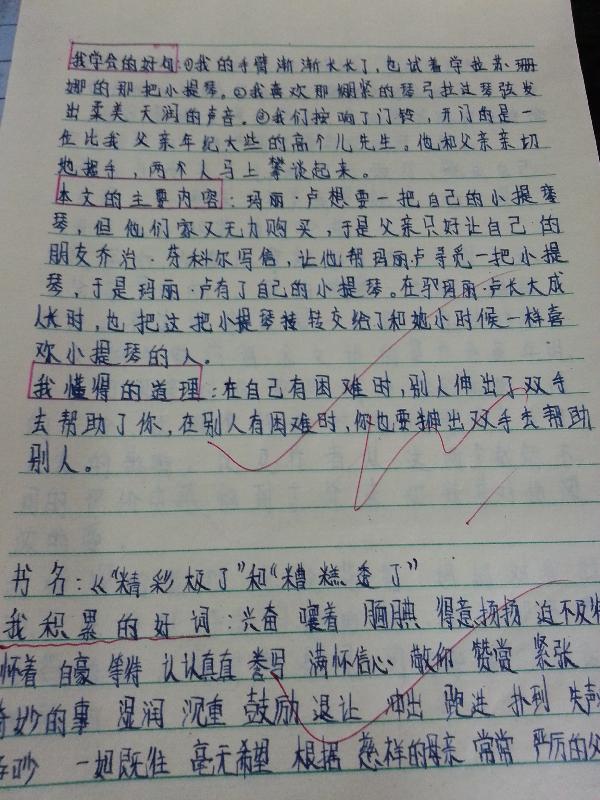 我学会的好句:①我的手臂渐渐长长了,也试着学拉苏珊
娜的那把小提琴。②我喜欢那绷紧的琴弓拉过琴弦发
出柔美天润的声音。③我们按响了门铃,开门的是一
位比我父亲年纪大些的高个儿先生。他和父亲亲切
地握手,两个人马上攀谈起来。
本文的主要内容:玛丽·卢想要一把自己的小提琴
琴,但他们家又无力购买,于是父亲只好让自己的
朋友乔治·芬科尔写信,让他帮玛丽卢寻觅一把小提
琴,于是玛丽·卢有了自己的小提琴。在玛丽·卢长大成
人时,也把这把小提琴转交给了和她小时候一样喜
欢小提琴的人。
我懂得的道理:在自己有困难时,别人伸出了双手
去帮助了你,在别人有困难时,你也要伸出双手去帮助
别人。
书名:《“精彩极了”和“糟糕透了”
我积累的好词:兴奋 嚷着 腼腆 得意扬扬 迫不及待
怀着 自豪 等待 认认真真 誊写 满怀信心 敞仰 赞赏 紧张
奇妙的事 湿润 沉重 鼓励 退让 冲出 跑进 扑到 失声
吵 一如既往 毫无希望 根据 慈祥的母亲 常常 严厉的父